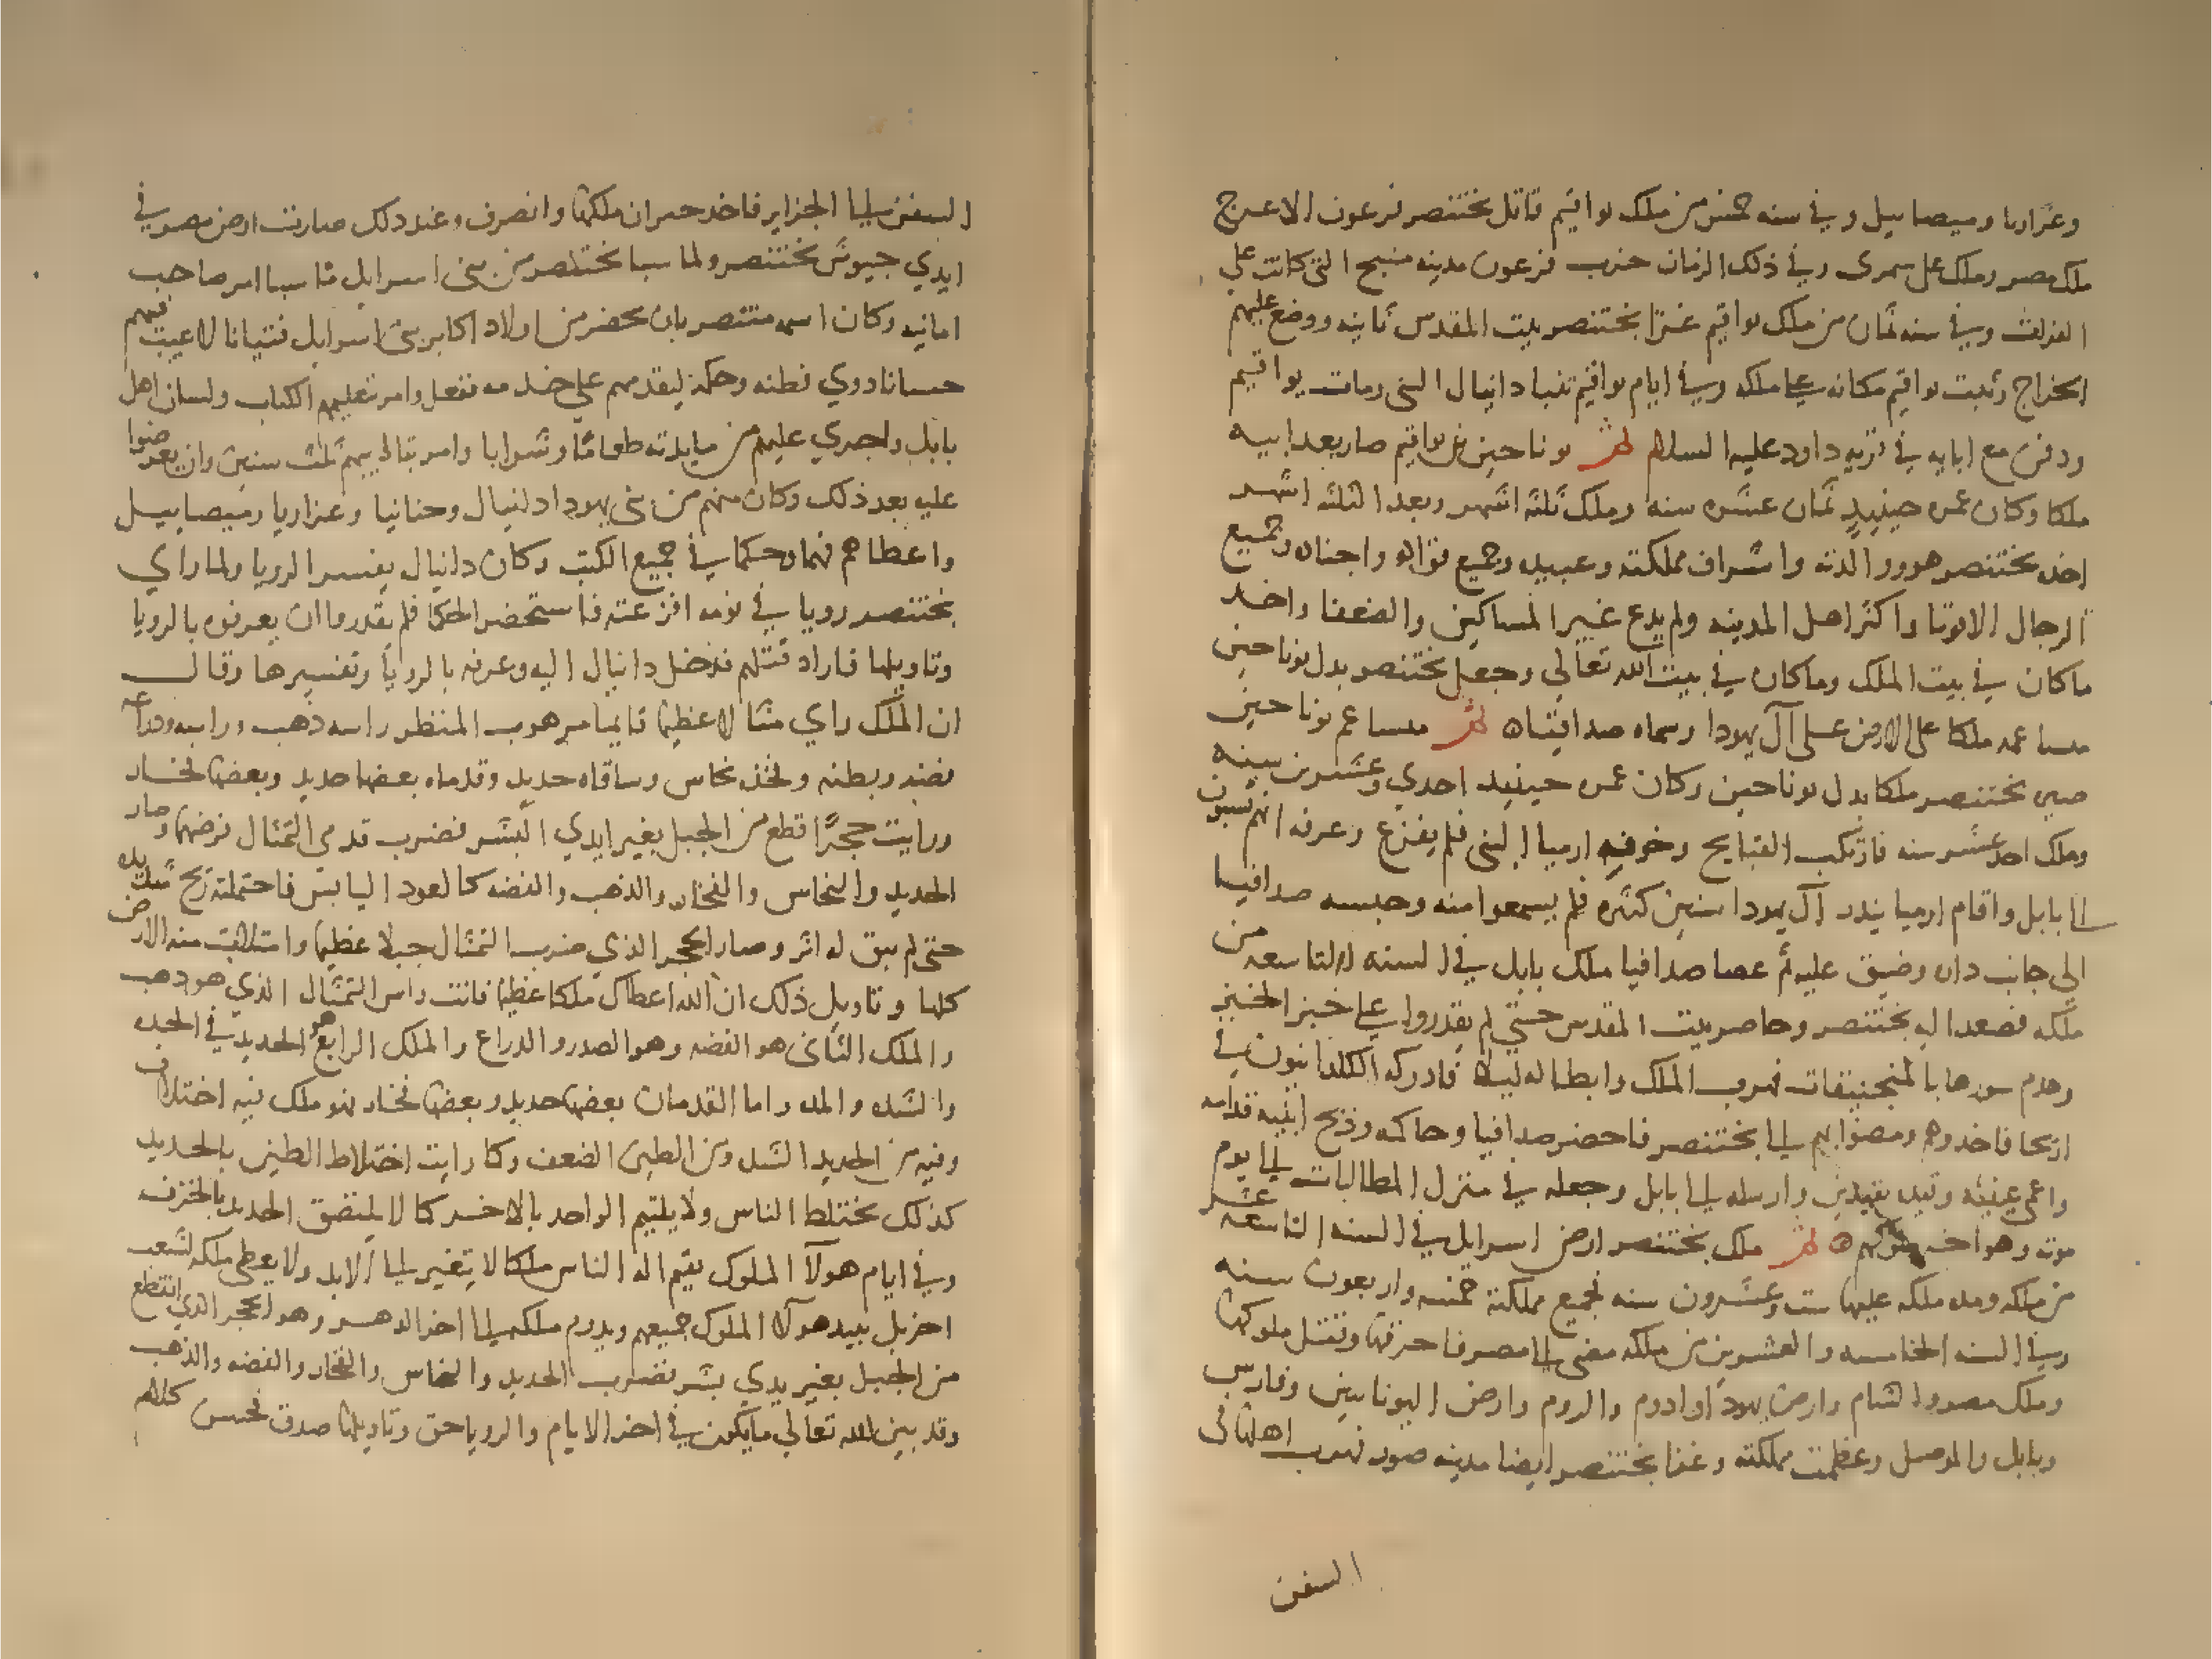 وعزاريا وميصاييل وفي سنه خمس من ملك يواقيم قاتل بختنصر فرعون الاعرج
ملك مصر وملك على سمرى وفي ذلك الزمان خرب فرعون مدينه منبج التي كانت على
الفرات وفي سنه ثمان من ملك يواقيم غزا بختنصر بيت المقدس ثانيه ووضع عليهم
الخراج وثبت يواقيم مكانه على ملكه وفي ايام يواقيم تنبا دانيال النبي ومات يواقيم
ودفن مع ابايه في تربه داود عليه السلام يوناحين بن يواقيم صار بعد ابيه
ملكا وكان عمره حينيذٍ ثمان عشره سنه وملك ثلثه اشهر وبعد الثلثه اشهر
اخذ بختنصر هو ووالدته واشراف مملكته وعبيده وجميع قواده واجناده وجميع
الرجال الاقويا واكثر اهل المدينه ولم يدع غير المساكين والضعفا واخذ
ماكان في بيت الملك وماكان في بيت الله تعالي وجعل بختنصر بدل يوناحين
عمه ملكا على الارض على آل يهودا وسماه صداقيا عم يوناحين
صير بختنصر ملكا بدل يوناحين وكان عمره حينيذ احدي وعشرين سنه
وملك احد عشر سنه فارتكب القبايح وخوفه ارميا النبي فلم يفزع وعرفه انهم يسبون
الى بابل واقام ارميا ينذر آل يهودا سنين كثيره فلم يسمعوا منه وحبسه صداقيا
الى جانب داره وضيق عليه ثم عصا صداقيا ملك بابل في السنه التاسعه من
ملكه فصعد اليه بختنصر وحاصر بيت المقدس حتي لم يقدروا على خبز الخبز
وهدم سورها بالمنجنيقات فهرب الملك وابطاله ليلا فادركه الكلدانيون في
اريحا فاخذوهم ومضوا بهم الى بختنصر فاحضر صداقيا وحاكمه وذبح ابنيه قدامه
واعمى عينيه وقيده بقيدين وارسله الى بابل وجعله في منزل المطالبات الى يوم
موته وهو اخر ملوكهم ملك بختنصر ارض اسرايل في السنه التاسعه عشر
من ملكه ومده ملكه عليها ست وعشرون سنه فجميع مملكته خمسه واربعون سنه
وفي السنه الخامسه والعشرين من ملكه مضى الى مصر فاحرقها وقتل ملوكها
وملك مصر والشام وارض يهودا وادوم والروم وارض اليونانيين وفارس
وبابل والموصل وعظمت مملكته وغزا بختنصر ايضا مدينه صور فهرب اهلها في
السفن
السفن الى الجزاير فاخذ حيران ملكها وانصرف وعند ذلك صارت ارض مصر في
ايدي جيوش بختنصر ولما سبا بختنصر من بني اسرايل ما سبا امر صاحب
امانيه وكان اسمه متنصر بان يحضر من اولاد اكابر بني اسرايل فتيانا لا عيب فيهم
حسانا دوي فطنه وحكمة ليقدمهم على خدمه ففعل وامر بتعليمهم الكتاب ولسان اهل
بابل واجري عليهم من مايدته طعاما وشرابا وامر بتاديبهم ثلث سنين وان يعرضوا
عليه بعد ذلك وكان منهم من بني يهودا دانيال وحنانيا وعزاريا وميصاييل
واعطاهم فهما وحكما في جميع الكتب وكان دانيال يفسر الرويا ولما راي
بختنصر رويا في نومه افزعته فاستحضر الحكما فلم يقدروا ان يعرفوه بالرويا
وتاويلها فاراد قتلهم فدخل دانيال اليه وعرفه بالرويا وتفسيرها وقال
ان الملك راي مثالا عظيما قايما مرهوب المنظر راسه ذهب وراسه ودراعه
فضه وبطنه وفخذه نحاس وساقاه حديد وقدماه بعضها حديد وبعضها فخار
ورايت حجرًا قطع من الجبل بغير ايدي البشر فضرب قدمى التمثال فرضها وصار
الحديد والنحاس والفخار والذهب والفضه كالعود اليابس فاحتملته ريح شديده
حتى لم يبق له اثر وصار الحجر الذي ضرب التمثال جبلا عظيما وامتلات منه الارض
كلها وتاويل ذلك ان الله اعطاك ملكا عظيما فانت راس التمثال الذي هو دهب
والملك الثاني هو الفضه وهو الصدر والدراع والملك الرابع هو الحديد في الحده
والشده والمده واما القدمان بعضها حديد وبعضها فخار فهو ملك فيه اختلاف
وفيه من الحديد الشده ومن الطين الضعف وكما رايت اختلاط الطين بالحديد
كذلك يختلط الناس ولا يلتيم الواحد بالاخر كما لا يتفق الحديد بالخزف
وفي ايام هولآ الملوك يقيم اله الناس ملكا لا يتغير الى الابد ولا يعطي ملكه لشعب
اخر بل يبيد هولآ الملوك جميعهم ويدوم ملكه الى اخر الدهر وهو الحجر الدي انقطع
من الجبل بغير يدي بشر فضرب الحديد والنحاس والفخار والفضه والذهب
وقد بين الله تعالي مايكون في اخر الايام والرويا حق وتاويلها صدق فحسن كلام